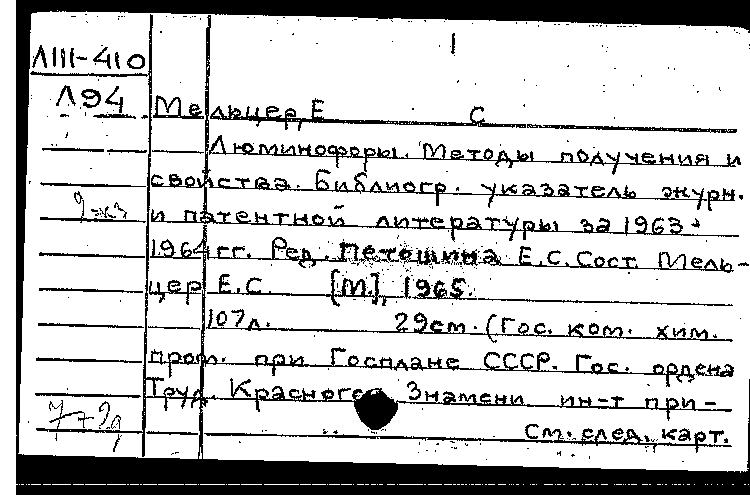 1
ЛIII-410
Л94
Мельцер, Е С
Люминофоры. Методы получения и
свойства. Библиогр. указатель журн.
и патентной литературы за 1963-
1964 гг. Ред. Петошина Е.С. Сост. Мель-
цер Е.С. [М.], 1965.
107л. 29см. (Гос. ком. хим.
пром. при Госплане СССР. Гос. ордена
Труд. Красного Знамени ин-т при-
См. след. карт.